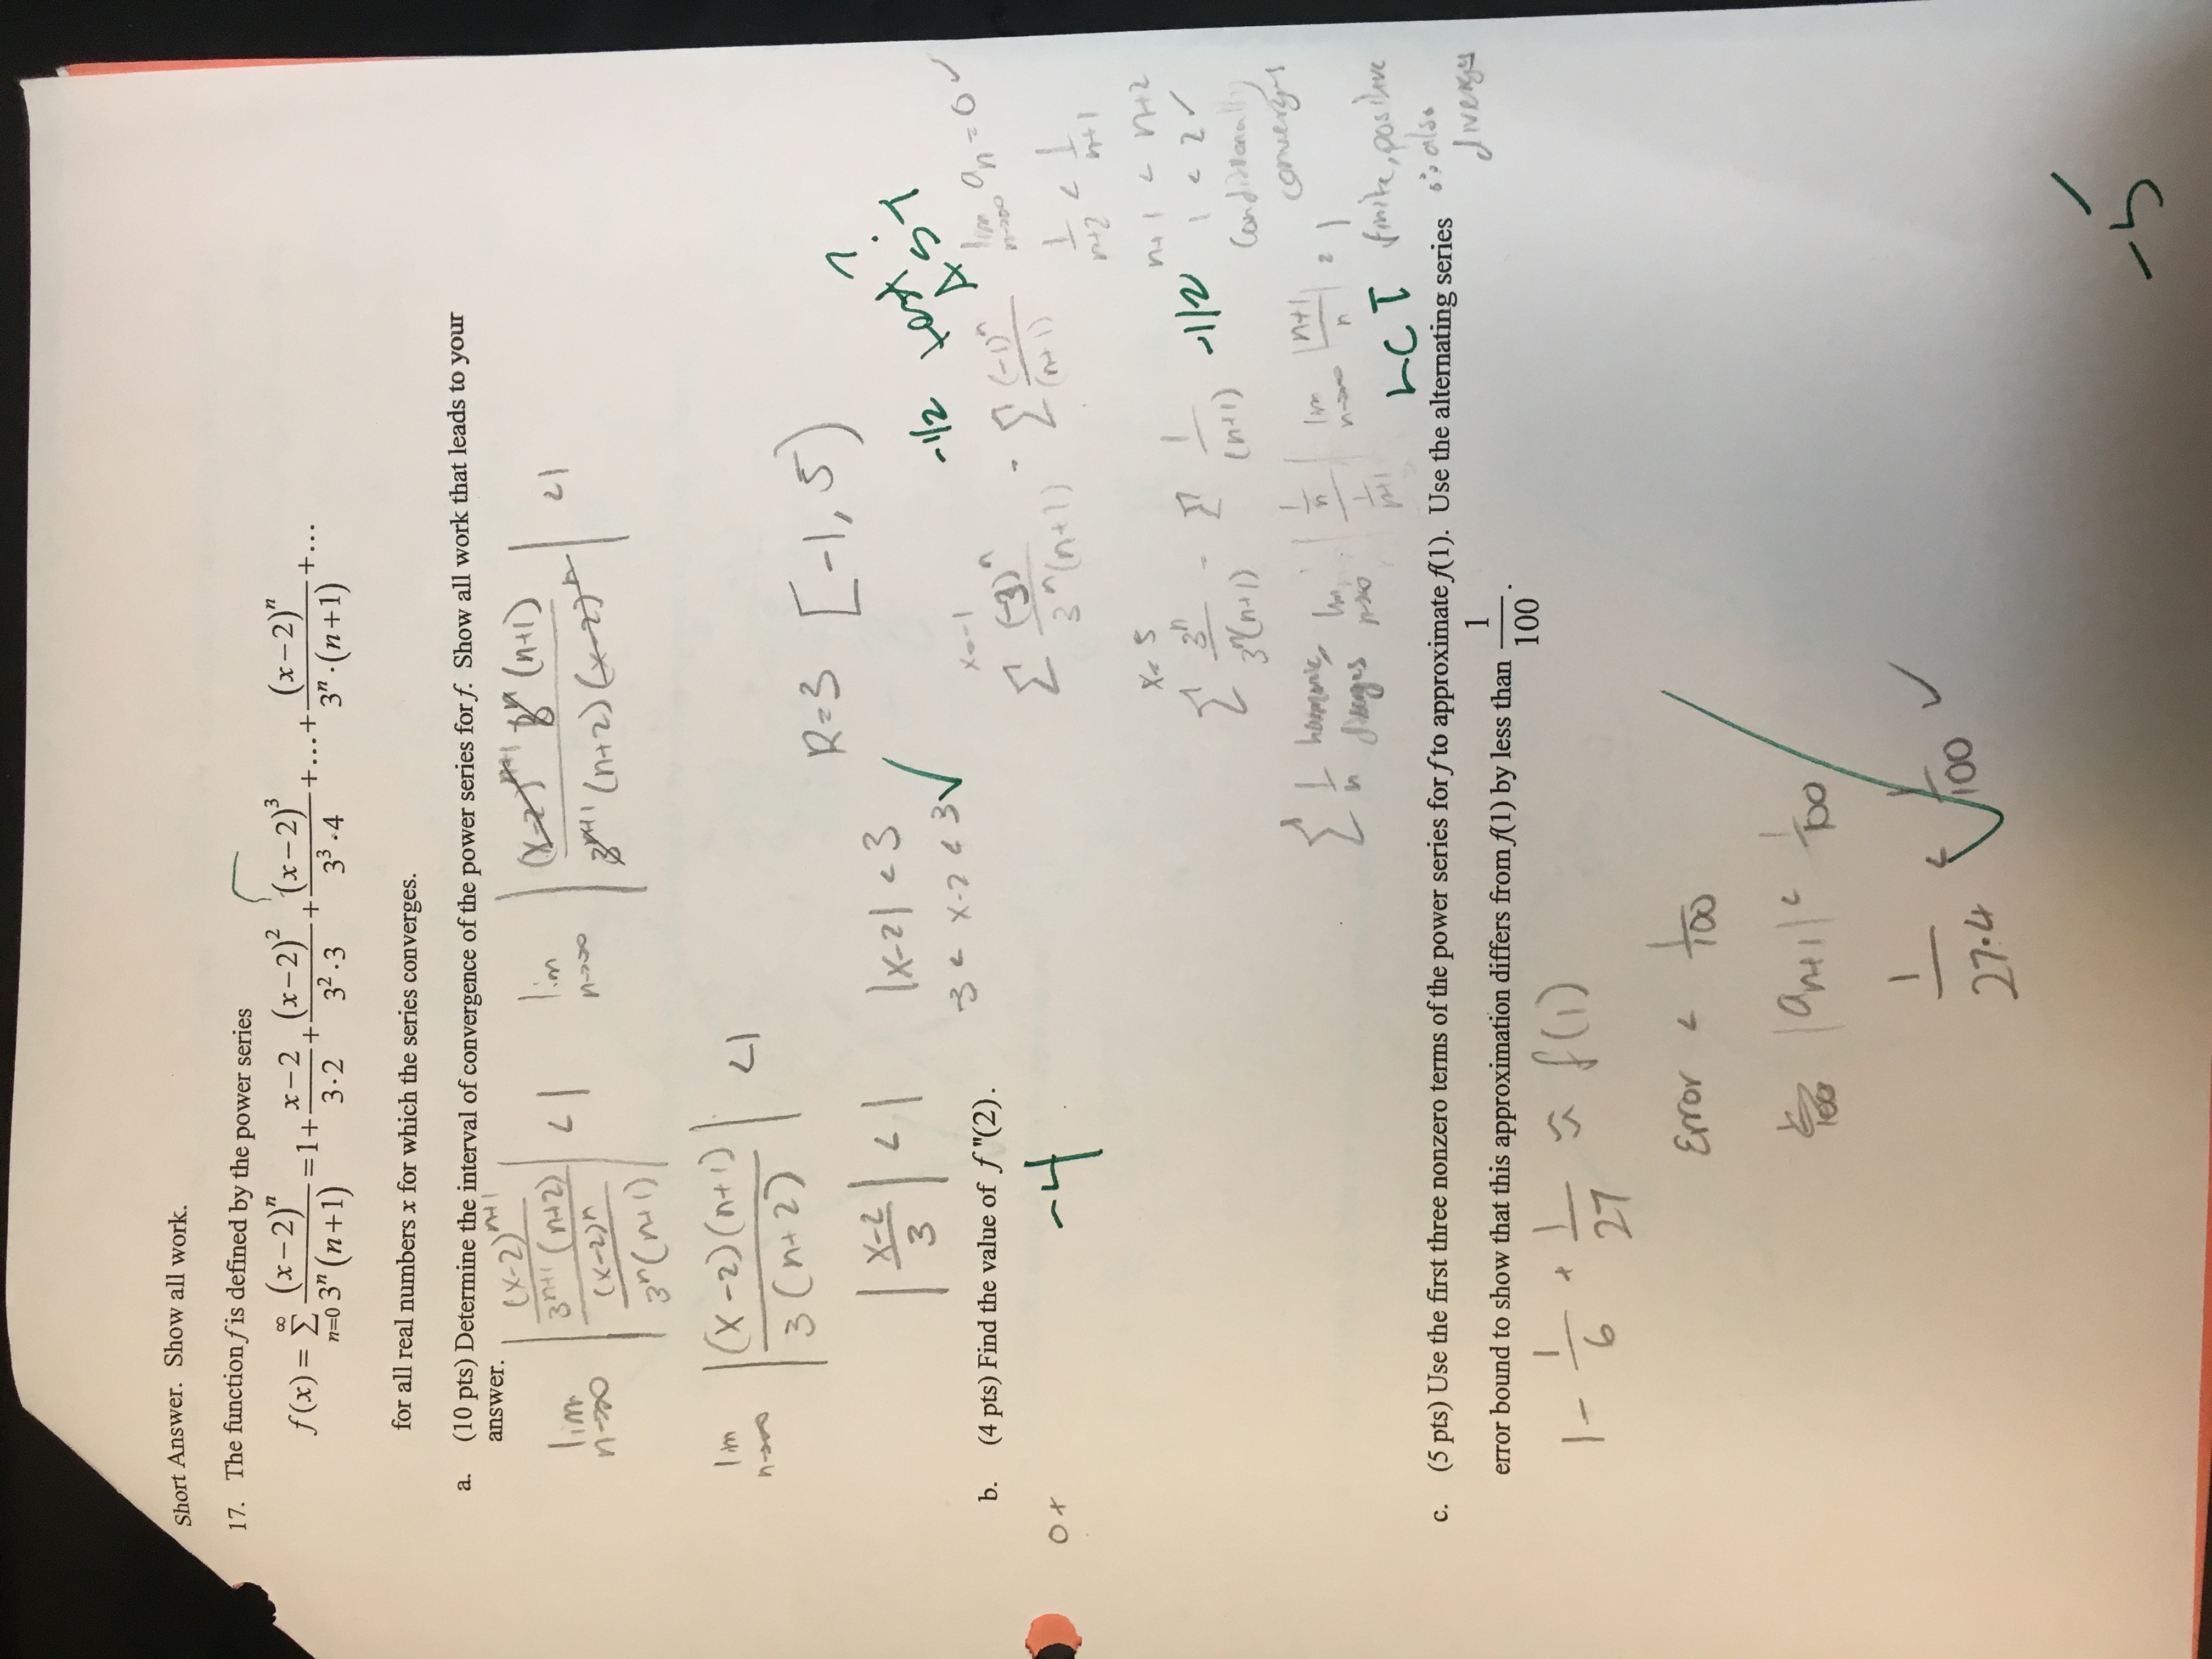 Short Answer. Show all work.
17. The function f is defined by the power series
f(x) = ∑_{n=0}^{∞} (x-2)^n / 3^n (n+1) = 1 + x-2 / 3·2 + (x-2)^2 / 3^2·3 + (x-2)^3 / 3^3·4 + ... + (x-2)^n / 3^n·(n+1) + ...
for all real numbers x for which the series converges.
a. (10 pts) Determine the interval of convergence of the power series for f. Show all work that leads to your
answer.
lim n→∞ | (x-2)^{n+1} / 3^{n+1} (n+2) / (x-2)^n / 3^n (n+1) | < 1
lim n→∞ | (x-2)^{n+1} 3^n (n+1) / 3^{n+1} (n+2) (x-2)^n | < 1
lim n→∞ | (x-2)(n+1) / 3(n+2) | < 1
R=3 [-1, 5)
| x-2 / 3 | < 1
|x-2| < 3 ✓
-3 < x-2 < 3
-1/2 test?
AST
b. (4 pts) Find the value of f "(2).
0+
-4
x=-1
∑ (-3)^n / 3^n (n+1) = ∑ (-1)^n / (n+1)
lim n→∞ a_n = 0 ✓
1 / n+2 < 1 / n+1
n+1 < n+2
1 < 2 ✓
Conditionally
converges
x= 5
∑ 3^n / 3^n (n+1) = ∑ 1 / (n+1) -1/2
∑ 1/n harmonic, diverges lim n→∞ | 1/n / 1/n+1 | lim n→∞ | n+1 / n | = 1
LCT finite, positive
∴ also
diverges
c. (5 pts) Use the first three nonzero terms of the power series for f to approximate f(1). Use the alternating series
error bound to show that this approximation differs from f(1) by less than 1/100.
1 - 1/6 + 1/27 ≈ f(1)
Error < 1/100
|a_{n+1}| < 1/100
1 / 27·4 < 1/100 ✓
-5